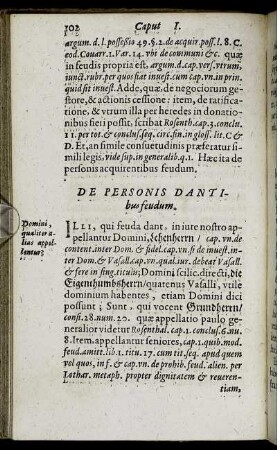 102 Caput I.
argum. d. l. possessio 49. §. 2. de acquir. poss. l. 8. C.
eod. Couarr. 1. Var. 14. vbi de communi &c. quæ
in feudis propria est, argum. d. cap. vers. vtrum,
iunct. rubr. per quos fiat inuest. cum cap. vn. in prin.
quid sit inuest. Adde, quæ, de negociorum ge-
store, & actionis cessione: item, de ratificatio-
ne, & vtrum illa per heredes in donatio-
nibus fieri possit, scribat Rosenth. cap. 3. conclu.
11. per tot. & conclus. seq. circ. fin. in gloss. lit. C. &
D. Et, an simile consuetudinis præferatur si-
mili legis, vide sup. in general. q. 1. Hæc ita de
personis acquirentibus feudum.
DE PERSONIS DANTI-
bus feudum.
Domini,
qualiter a-
lias appel-
lentur;
ILLI, qui feuda dant, in iure nostro ap-
pellantur Domini, Lehenherrn / cap. vn. de
content. inter Dom. & fidel. cap. vn. si de inuest. in-
ter Dom. & Vasall. cap. vn. qual. iur. debeat Vasall.
& fere in sing. titulis; Domini scilic. directi, die
Eigenthumbsherrn / quatenus Vasalli, vtile
dominium habentes, etiam Domini dici
possunt; Sunt, qui vocent Grundtherrn /
consi. 28. num. 20. quæ appellatio paulo ge-
neralior videtur Rosenthal. cap. 1. conclus. 6. nu.
8. Item, appellantur seniores, cap. 1. quib. mod.
feud. amitt. lib. 1. titu. 17. cum tit. seq. apud quem
vel quos, in f. & cap. vn. de prohib. feud. alien. per
Lothar. metaph. propter dignitatem & reueren-
tiam,